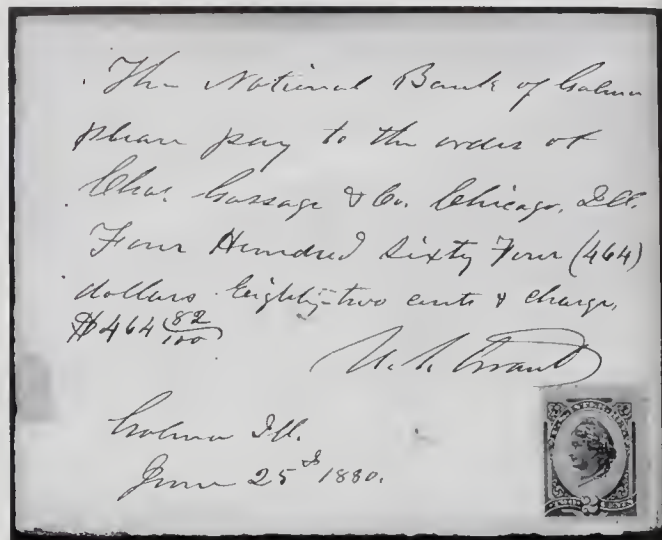 The National Bank of Galena
please pay to the order of
Chas. Gossage & Co. Chicago, Ill.
Four Hundred Sixty Four (464)
dollars Eighty-two cents & charge,
$464 82/100
U. S. Grant
Galena Ill.
June 25th 1880.
U.S. INTER. REV.
TWO 2 CENTS